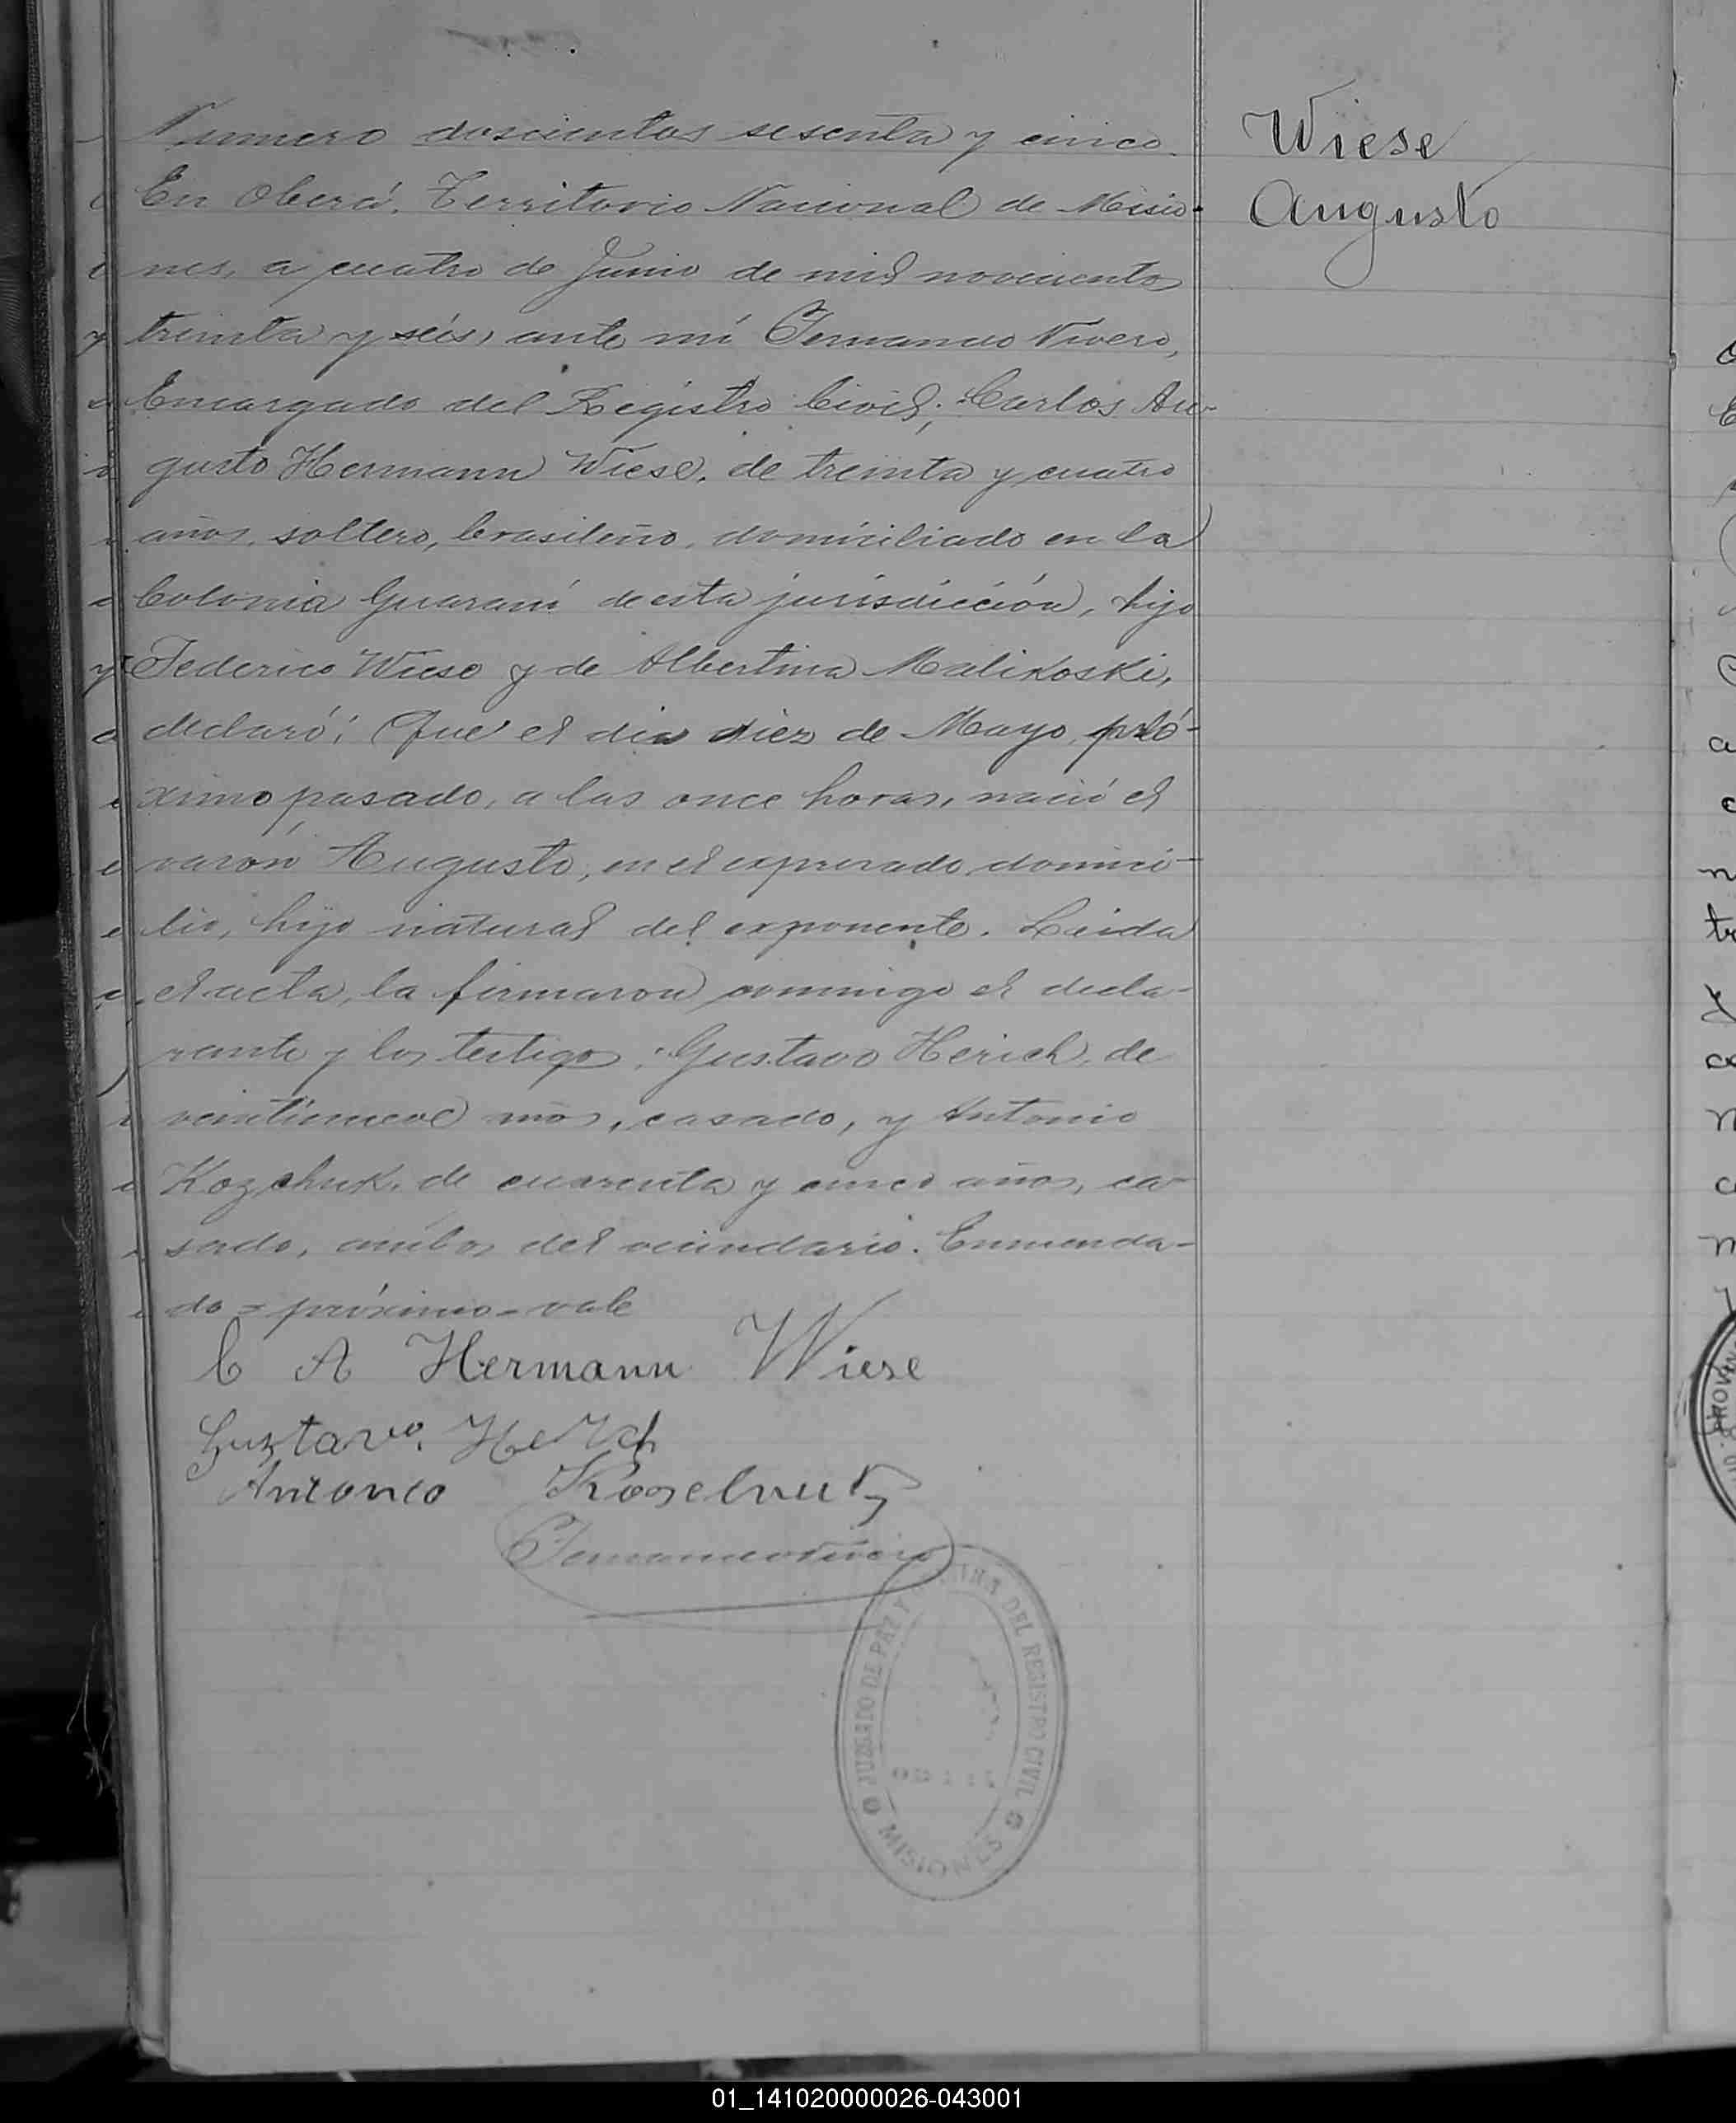 Número doscientos sesenta y cinco.
En Oberá, Territorio Nacional de Misio-
nes, a cuatro de Junio de mil novecientos
treinta y seis, ante mí Fernando Rivero,
Encargado del Registro Civil; Carlos Au-
gusto Hermann Wiese, de treinta y cuatro
años, soltero, brasileño, domiciliado en la
Colonia Guaraní de esta jurisdicción, hijo
Federico Wiese y de Albertina Malikoski,
declaró: Que el día diez de Mayo pró-
ximo pasado, a las once horas, nació el
varón Augusto, en el expresado domici-
lio, hijo natural del exponente. Leída
el acta, la firmaron conmigo el decla-
rante y los testigos: Gustavo Herich, de
veintinueve años, casado, y Antonio
Kozchuk, de cuarenta y cinco años, ca-
sado, ambos del vecindario. Enmenda-
do = próximo = vale
C A Hermann Wiese
Gustavo
Antonio
Wiese
Augusto
JUZGADO DE PAZ Y DEL REGISTRO CIVIL
MISIONES
01_141020000026-043001